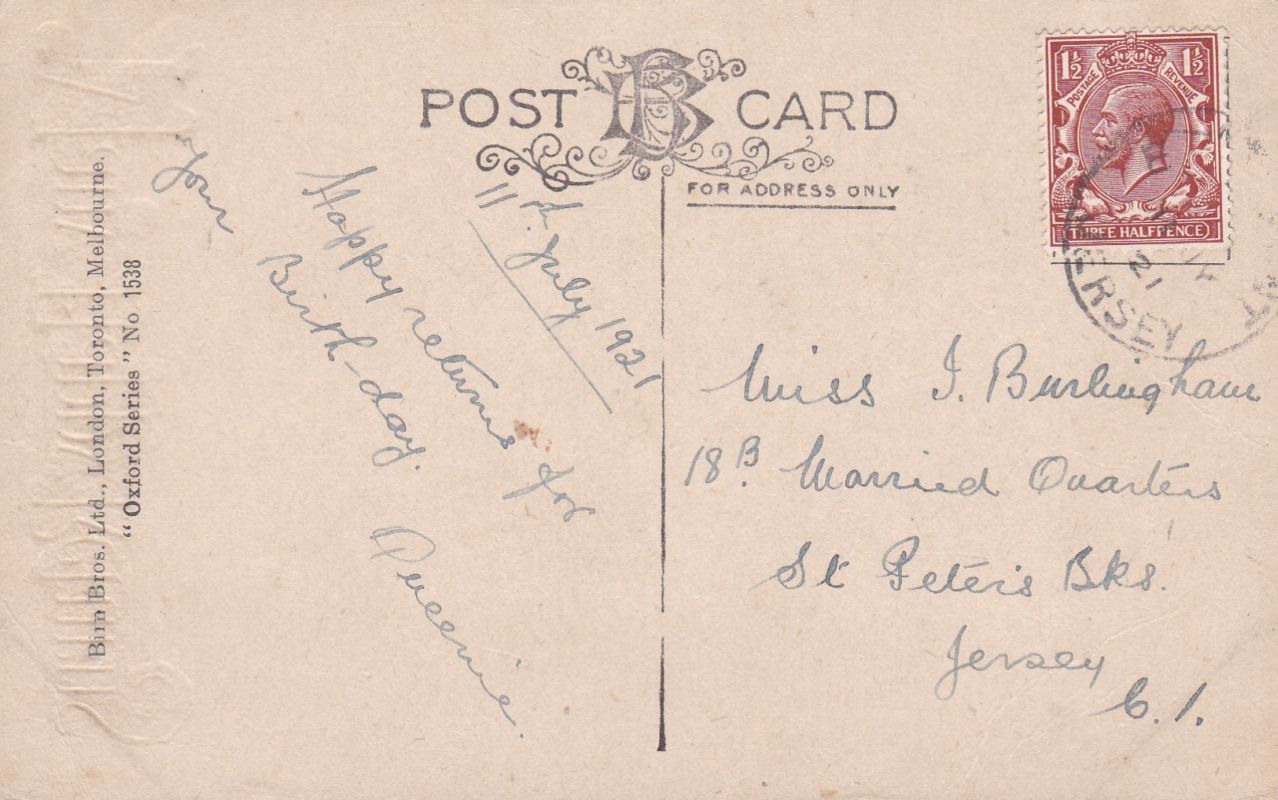 POST CARD
FOR ADDRESS ONLY
1½ 1½
POSTAGE REVENUE
THREE HALFPENCE
JERSEY
21
Birn Bros. Ltd., London, Toronto, Melbourne.
"Oxford Series" No. 1538
11th. July 1921
Happy returns for
your Birth-day.
Queenie.
Miss I. Burlingham
18B Married Quarters
St Peter's Bks.
Jersey
C.I.